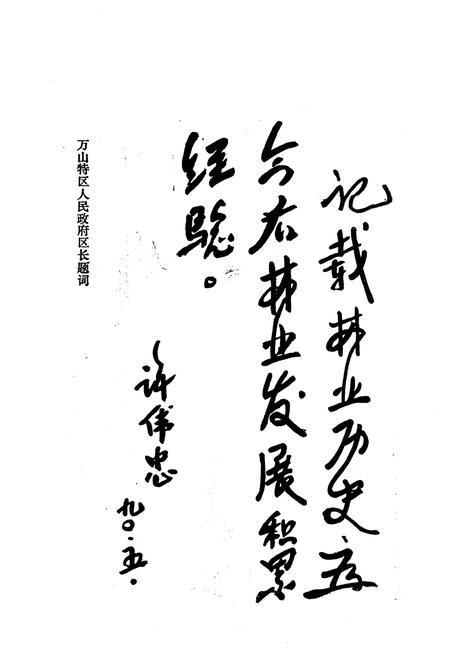 记载林业历史，为
今后林业发展积累
经验。
许伟忠
九〇.五.
万山特区人民政府区长题词